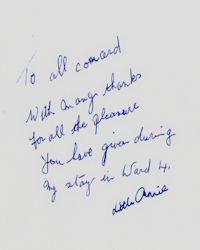 To all comard
With many thanks
For all the pleasure
You have given during
My stay in Ward 4.
Little Annie